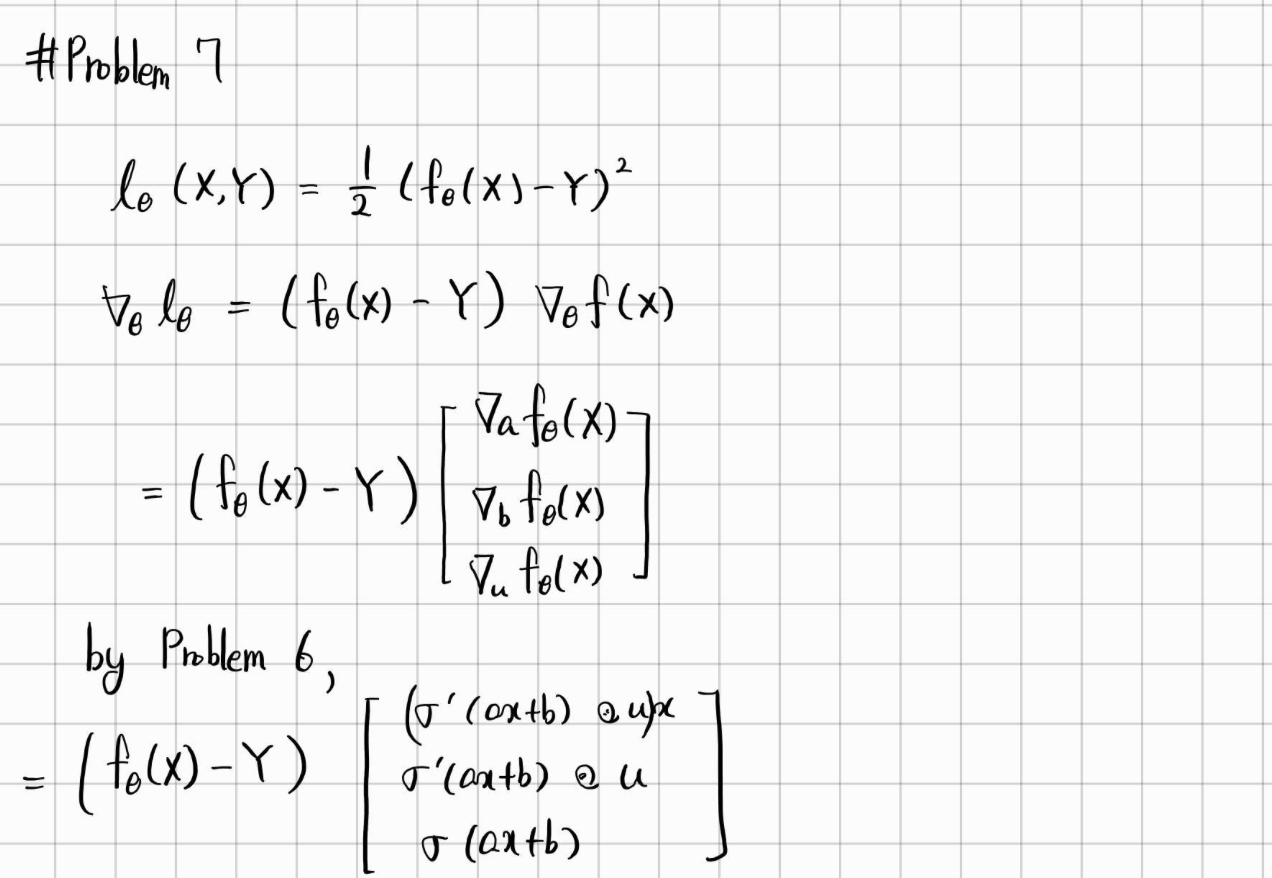 #Problem 7
l_θ (X,Y) = 1/2 (f_θ(X) - Y)²
∇_θ l_θ = (f_θ(X) - Y) ∇_θ f(X)
= (f_θ(X) - Y) [ ∇_a f_θ(X)
∇_b f_θ(X)
∇_u f_θ(X) ]
by Problem 6,
= (f_θ(X) - Y) [ (σ'(ax+b) ⊙ u)x
σ'(ax+b) ⊙ u
σ (ax+b) ]